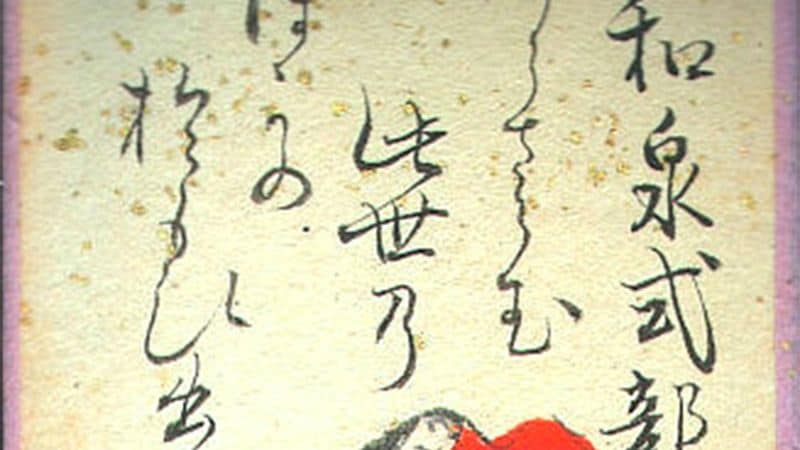 和泉式部
らさらむ
此世乃
ほかの
おもひ出